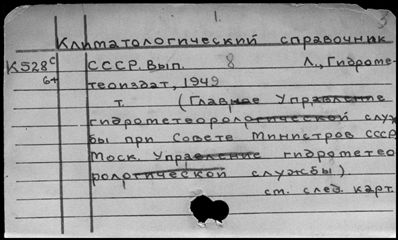 1.
3
Климатологический справочник
К528с СССР. Вып. 8 Л., Гидроме-
64 теоиздат, 1949
т. (Главное Управление
гидрометеорологической служ
бы при Совете Министров СССР
Моск. Управление гидрометео
рологической службы).
см. след. карт.